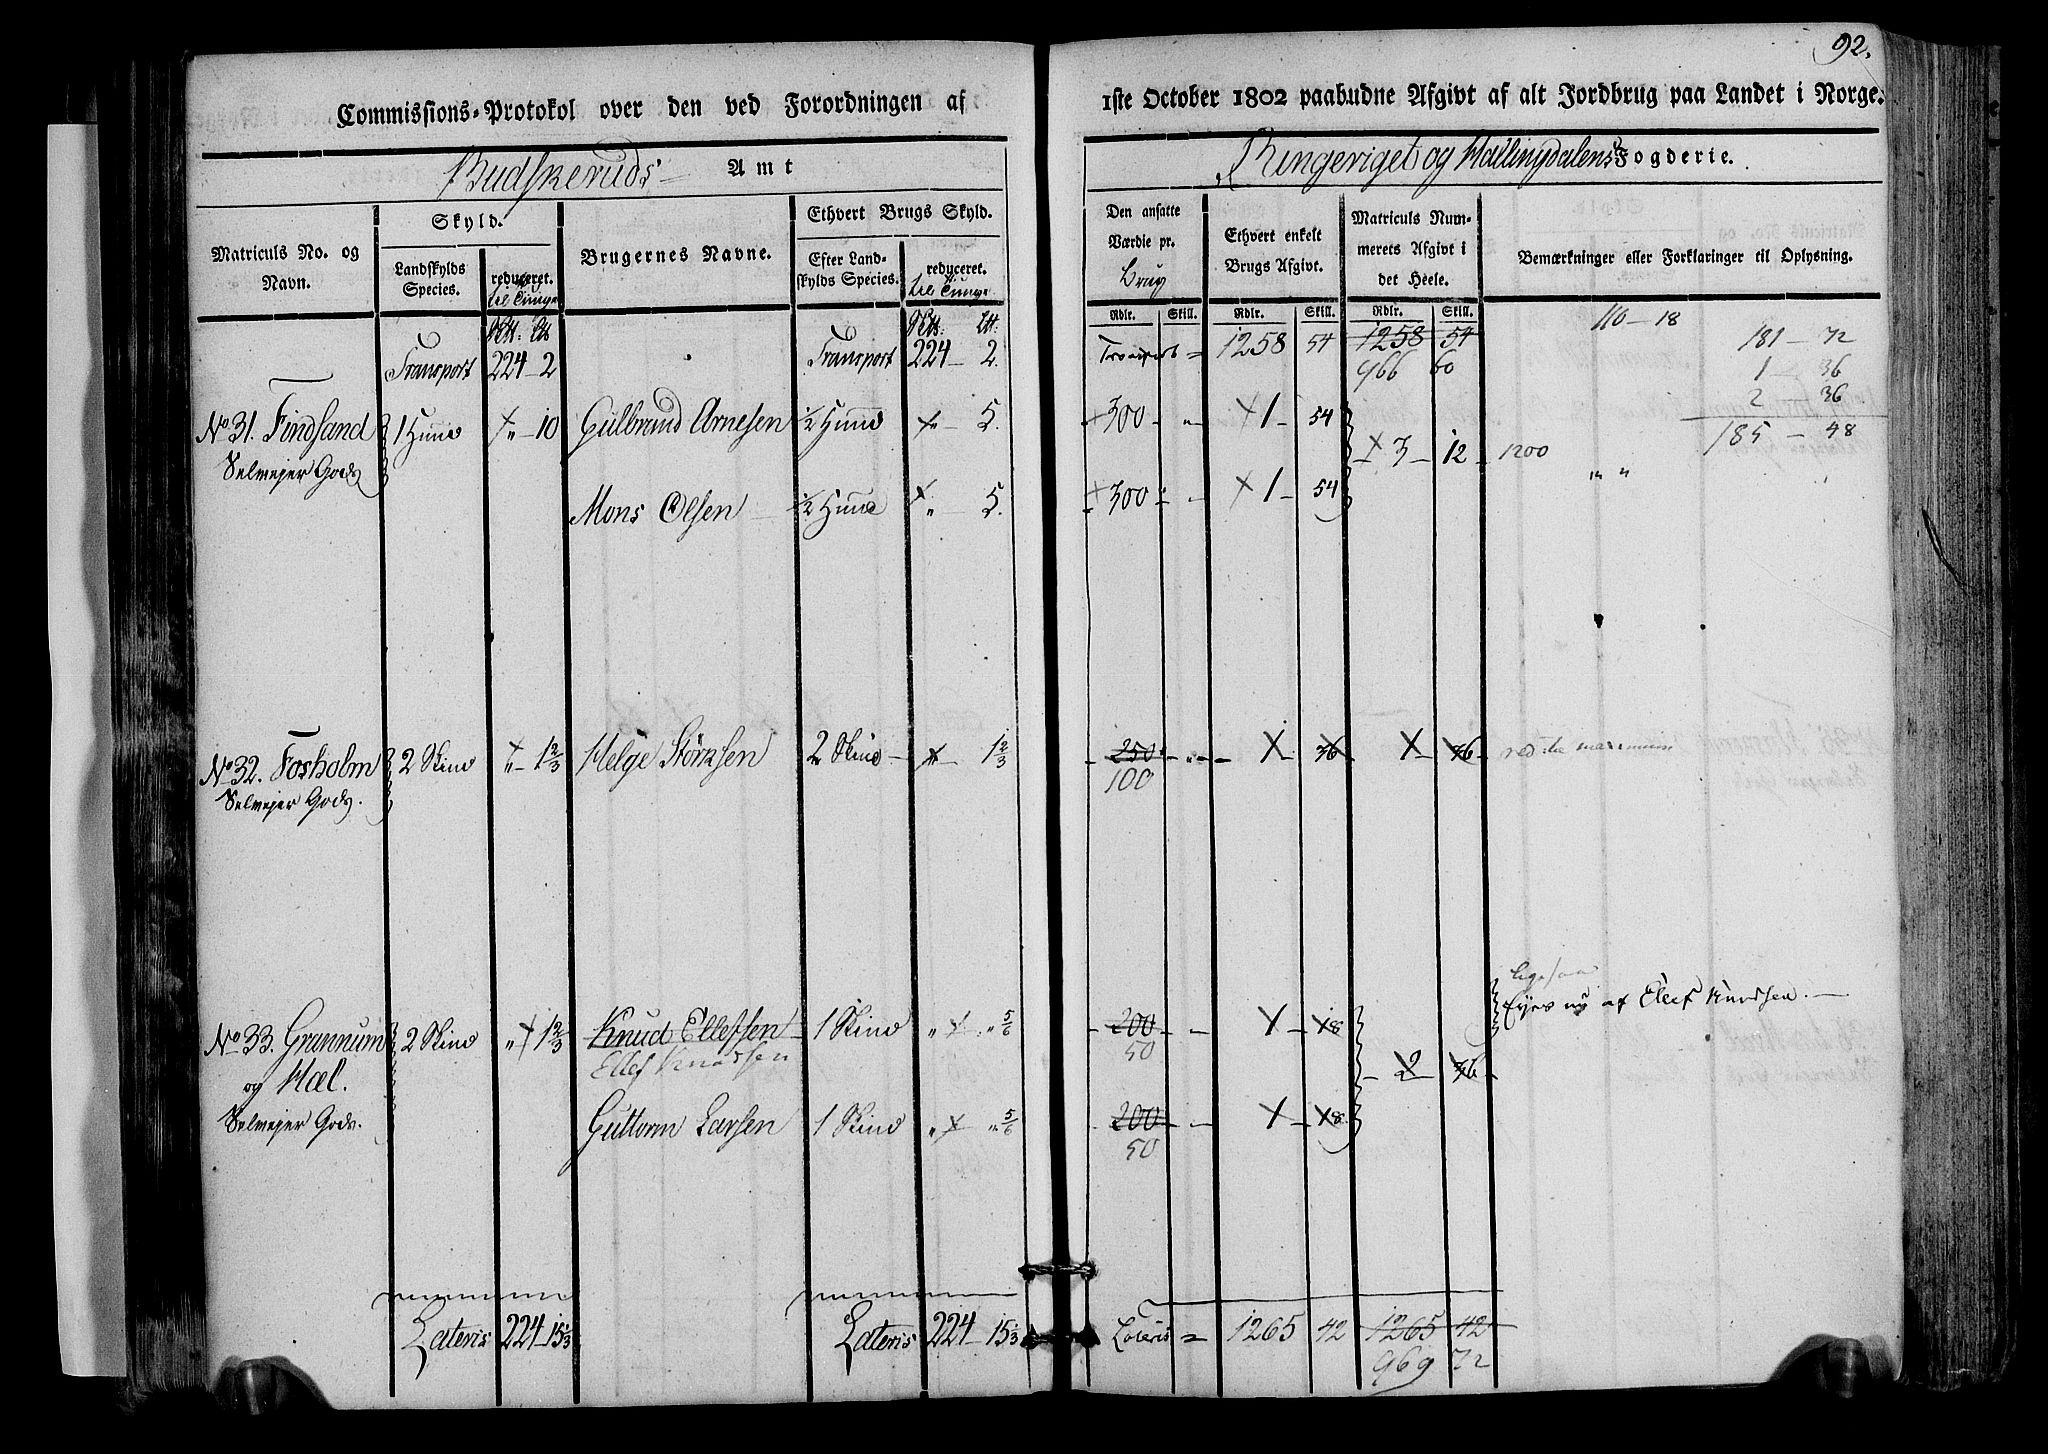 92.
Commissions-Protokol over den ved Forordningen af 1ste October 1802 paabudne Afgivt af alt Jordbrug paa Landet i Norge.
Budskeruds Amt
Ringeriget og Hallingdalens Fogderie.
Matriculs No. og Navn.
Skyld.
Landskylds Species.
reduceret. til Tunge
Brugernes Navne.
Ethvert Brugs Skyld.
Efter Landskylds Species.
reduceret. til Tunge
Den ansatte Værdie pr. Brug
Ethvert enkelt Brugs Afgivt.
Matriculs Nummerets Afgivt i det Heele.
Bemærkninger eller Forklaringer til Oplysning.
Rdlr. Skill. Rdlr. Skill. Rdlr. Skill.
110 - 18
Transport 224 - 2 Transport 224 - 2. Transport = 1258 54 1258 54 181 - 72
966 60 1 - 36
2 36
185 - 48
No 31. Findsand 1 Huud " - 10 Gulbrand Arnesen ½ Huud " - 5. 300 - " - 1 - 54
Selvejer Gods 3 - 12 1200 " "
Mons Olsen ½ Huud " - 5. 300 - " - 1 - 54
No 32. Fosholm 2 Skind " - 1 2/3 Helge Störksen 2 Skind - " - 1 2/3 250 - " - 1 36 1 36
Selvejer Gods. 100
ligesaa
Eyes ny af Ellef Knudsen.
No 33. Grannum 2 Skind " 1 2/3 Knud Ellefsen 1 Skind " " 5/6 200 - " - 1 - 18
Ellef Knudsen 50
og Hæl. 2 36
Selvejer Gods. Guttorm Larsen 1 Skind " " 5/6 200 - " - 1 - 18
50
Lateris 224 - 15 1/3 Lateris 224 - 15 1/3 Lateris = 1265 42 1265 42
969 72